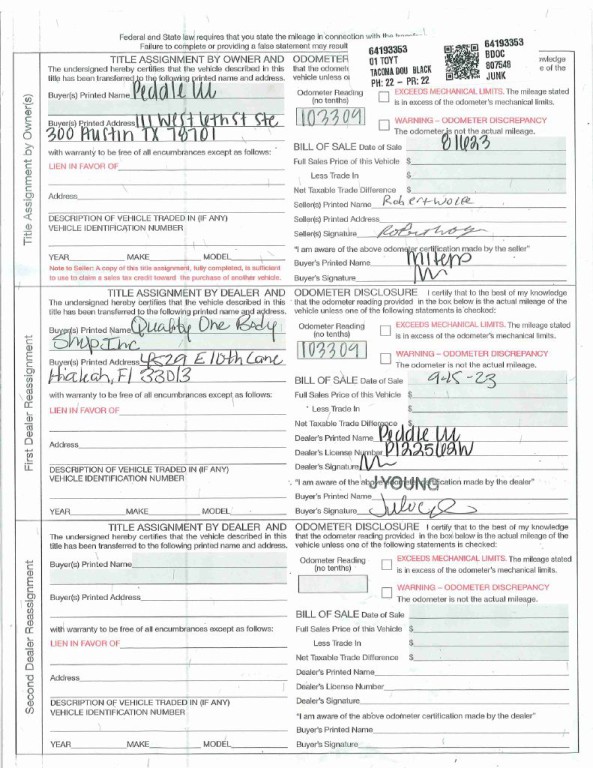 Federal and State law requires that you state the mileage in connection with the
Failure to complete or providing a false statement may result
64193353
01 TOYT
TACOMA DOU BLACK
PH: 22 - PR: 22
64193353
BDOC
807548
JUNK
Title Assignment by Owner(s)
TITLE ASSIGNMENT BY OWNER AND
The undersigned hereby certifies that the vehicle described in this
title has been transferred to the following printed name and address.
Buyer(s) Printed Name Peddle LLC
Buyer(s) Printed Address 111 West 6th St Ste
300 Austin TX 78701
with warranty to be free of all encumbrances except as follows:
LIEN IN FAVOR OF
Address
DESCRIPTION OF VEHICLE TRADED IN (IF ANY)
VEHICLE IDENTIFICATION NUMBER
YEAR MAKE MODEL
Note to Seller: A copy of this title assignment, fully completed, is sufficient
to use to claim a sales tax credit toward the purchase of another vehicle.
ODOMETER
that the odometer
vehicle unless o
nowledge
e of the
Odometer Reading
(no tenths)
103309
EXCEEDS MECHANICAL LIMITS. The mileage stated
is in excess of the odometer's mechanical limits.
WARNING – ODOMETER DISCREPANCY
The odometer is not the actual mileage.
BILL OF SALE Date of Sale
Full Sales Price of this Vehicle $
Less Trade In $
Net Taxable Trade Difference $
Seller(s) Printed Name Robert Wolfe
Seller(s) Printed Address
Seller(s) Signature
"I am aware of the above odometer certification made by the seller"
Buyer's Printed Name
Buyer's Signature
First Dealer Reassignment
TITLE ASSIGNMENT BY DEALER AND
The undersigned hereby certifies that the vehicle described in this
title has been transferred to the following printed name and address.
Buyer(s) Printed Name Quality One Body
Shop Inc
Buyer(s) Printed Address 4529 E 10th Lane
Hialeah, Fl 33013
with warranty to be free of all encumbrances except as follows:
LIEN IN FAVOR OF
Address
DESCRIPTION OF VEHICLE TRADED IN (IF ANY)
VEHICLE IDENTIFICATION NUMBER
YEAR MAKE MODEL
ODOMETER DISCLOSURE I certify that to the best of my knowledge
that the odometer reading provided in the box below is the actual mileage of the
vehicle unless one of the following statements is checked:
Odometer Reading
(no tenths)
103309
EXCEEDS MECHANICAL LIMITS. The mileage stated
is in excess of the odometer's mechanical limits.
WARNING – ODOMETER DISCREPANCY
The odometer is not the actual mileage.
BILL OF SALE Date of Sale
Full Sales Price of this Vehicle $
Less Trade In $
Net Taxable Trade Difference $
Dealer's Printed Name Peddle LLC
Dealer's License Number
Dealer's Signature
"I am aware of the above odometer certification made by the dealer"
J-YOUNG
Buyer's Printed Name
Buyer's Signature
Second Dealer Reassignment
TITLE ASSIGNMENT BY DEALER AND
The undersigned hereby certifies that the vehicle described in this
title has been transferred to the following printed name and address.
Buyer(s) Printed Name
Buyer(s) Printed Address
with warranty to be free of all encumbrances except as follows:
LIEN IN FAVOR OF
Address
DESCRIPTION OF VEHICLE TRADED IN (IF ANY)
VEHICLE IDENTIFICATION NUMBER
YEAR MAKE MODEL
ODOMETER DISCLOSURE I certify that to the best of my knowledge
that the odometer reading provided in the box below is the actual mileage of the
vehicle unless one of the following statements is checked:
Odometer Reading
(no tenths)
EXCEEDS MECHANICAL LIMITS. The mileage stated
is in excess of the odometer's mechanical limits.
WARNING – ODOMETER DISCREPANCY
The odometer is not the actual mileage.
BILL OF SALE Date of Sale
Full Sales Price of this Vehicle $
Less Trade In $
Net Taxable Trade Difference $
Dealer's Printed Name
Dealer's License Number
Dealer's Signature
"I am aware of the above odometer certification made by the dealer"
Buyer's Printed Name
Buyer's Signature